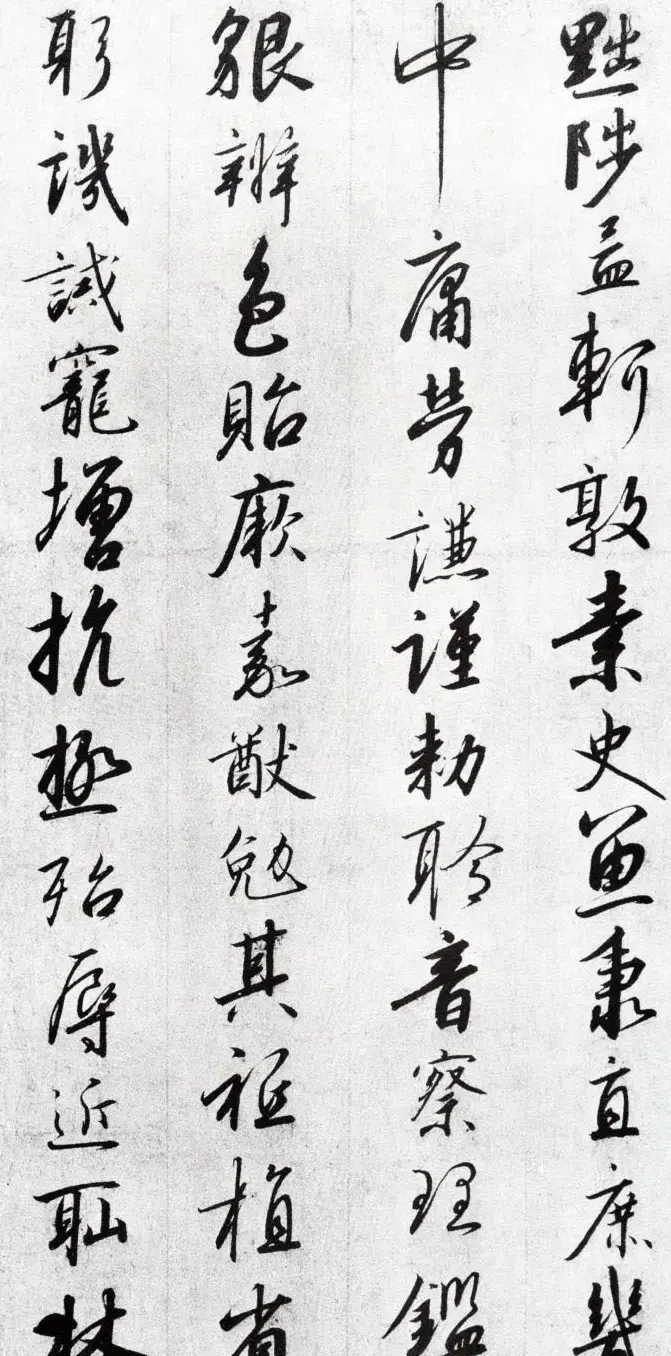 黜陟孟軻敦素史魚秉直庶幾
中庸勞謙謹勑聆音察理鑑
貌辨色貽厥嘉猷勉其祗植省
躬譏誡寵增抗極殆辱近耻林